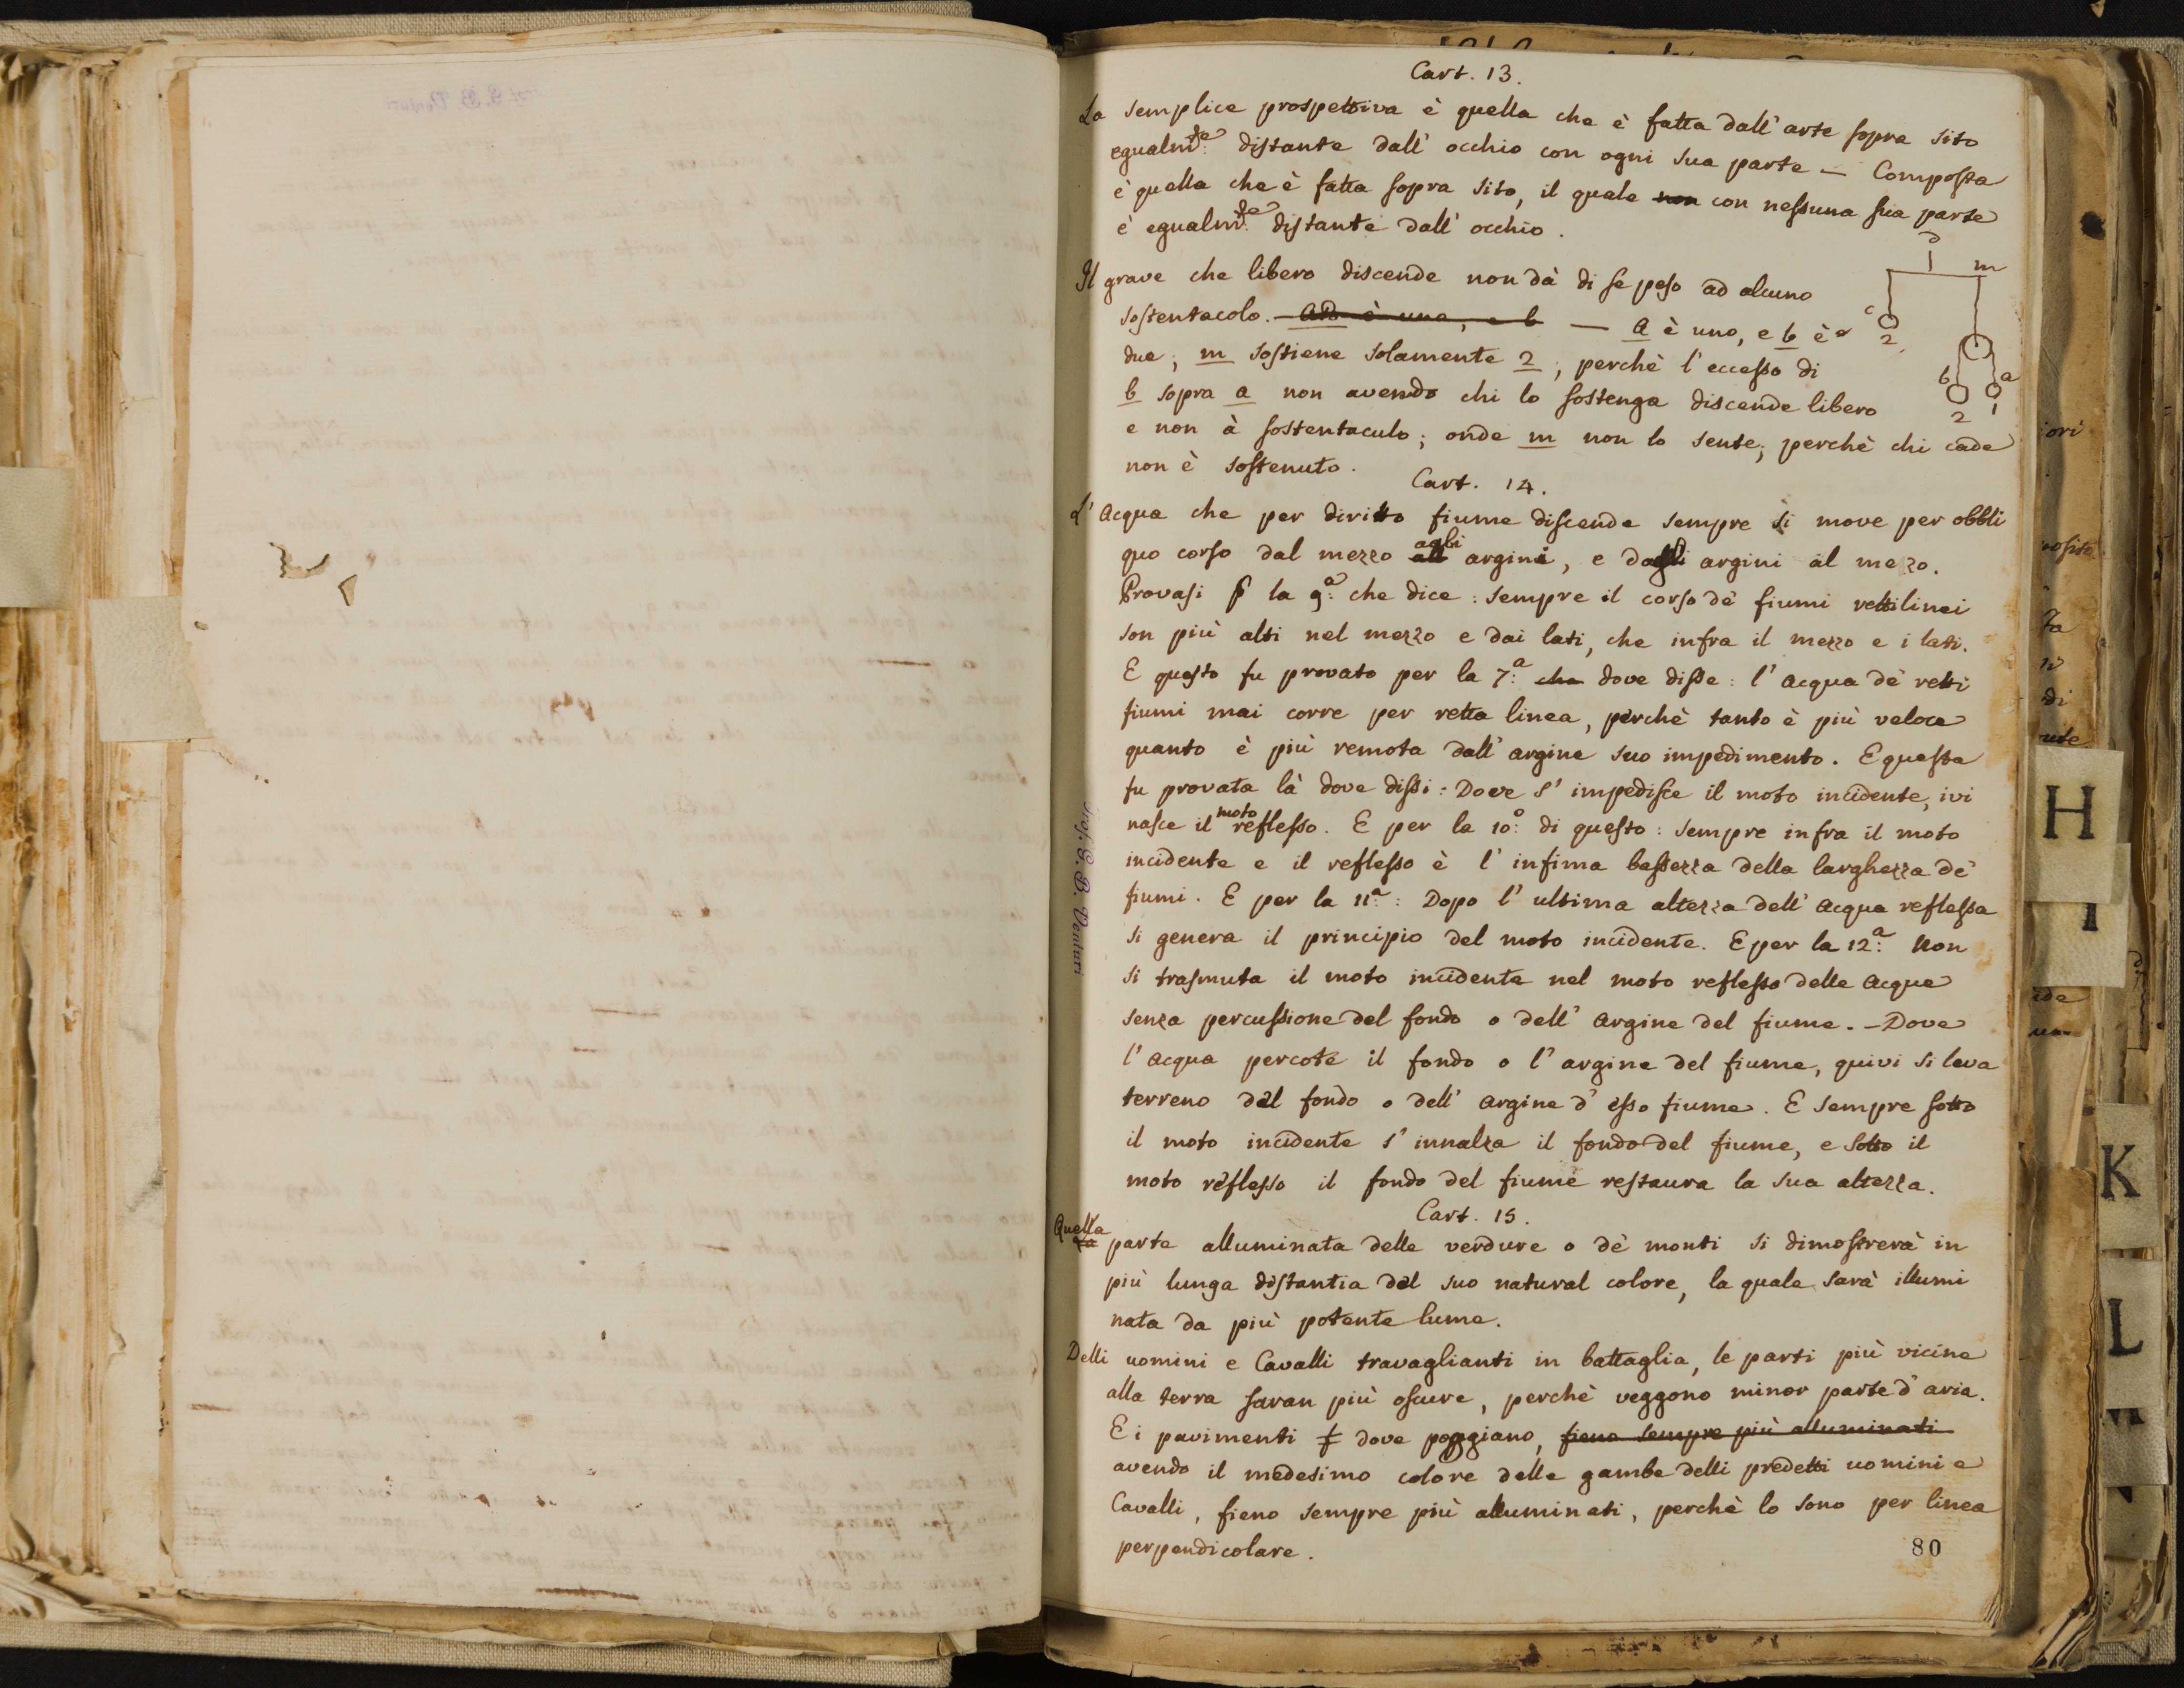 Cart. 13.
La semplice prospettiva è quella che è fatta dall' arte sopra sito
egualm.te distante dall' occhio con ogni sua parte — Composta
è quella che è fatta sopra sito, il quale non con nessuna sua parte
è egualm.te distante dall' occhio.
Il grave che libero discende non dà di se peso ad alcuno
sostentacolo. — a è uno, e b è
due; m sostiene solamente 2, perchè l' eccesso di
b sopra a non avendo chi lo sostenga discende libero
e non à sostentaculo; onde m non lo sente; perchè chi cade
non è sostenuto.
m
c
2
b
a
2
1
Cart. 14.
L' Acqua che per diritto fiume discende sempre si move per obbli
quo corso dal mezzo agli argini, e dagli argini al mezo.
Provasi p la 9.a che dice: sempre il corso de' fiumi rettilinei
son più alti nel mezzo e dai lati, che infra il mezzo e i lati.
E questo fu provato per la 7.a che dove disse: l' acqua de' retti
fiumi mai corre per retta linea, perchè tanto è più veloce
quanto è più remota dall' argine suo impedimento. E questa
fu provata là dove dissi: Dove s' impedisce il moto incidente, ivi
nasce il moto reflesso. E per la 10.o di questo: sempre infra il moto
incidente e il reflesso è l' infima bassezza della larghezza de'
fiumi. E per la 11.a: Dopo l' ultima altezza dell' acqua reflessa
si genera il principio del moto incidente. E per la 12.a: Non
si trasmuta il moto incidente nel moto reflesso delle acque
senza percussione del fondo o dell' argine del fiume. — Dove
l' acqua percote il fondo o l' argine del fiume, quivi si leva
terreno del fondo o dell' argine d' esso fiume. E sempre sotto
il moto incidente s' innalza il fondo del fiume, e sotto il
moto reflesso il fondo del fiume restaura la sua altezza.
Cart. 15.
Quella parte alluminata delle verdure o de' monti si dimostrerà in
più lunga distantia del suo natural colore, la quale sarà illumi
nata da più potente lume.
Delli uomini e Cavalli travaglianti in battaglia, le parti più vicine
alla terra saran più oscure, perchè veggono minor parte d' aria.
E i pavimenti dove poggiano, fieno sempre più alluminati
avendo il medesimo colore delle gambe delli predetti uomini e
Cavalli, fieno sempre più alluminati, perchè lo sono per linea
perpendicolare.
80
Prof. G. B. Venturi
H
I
K
L